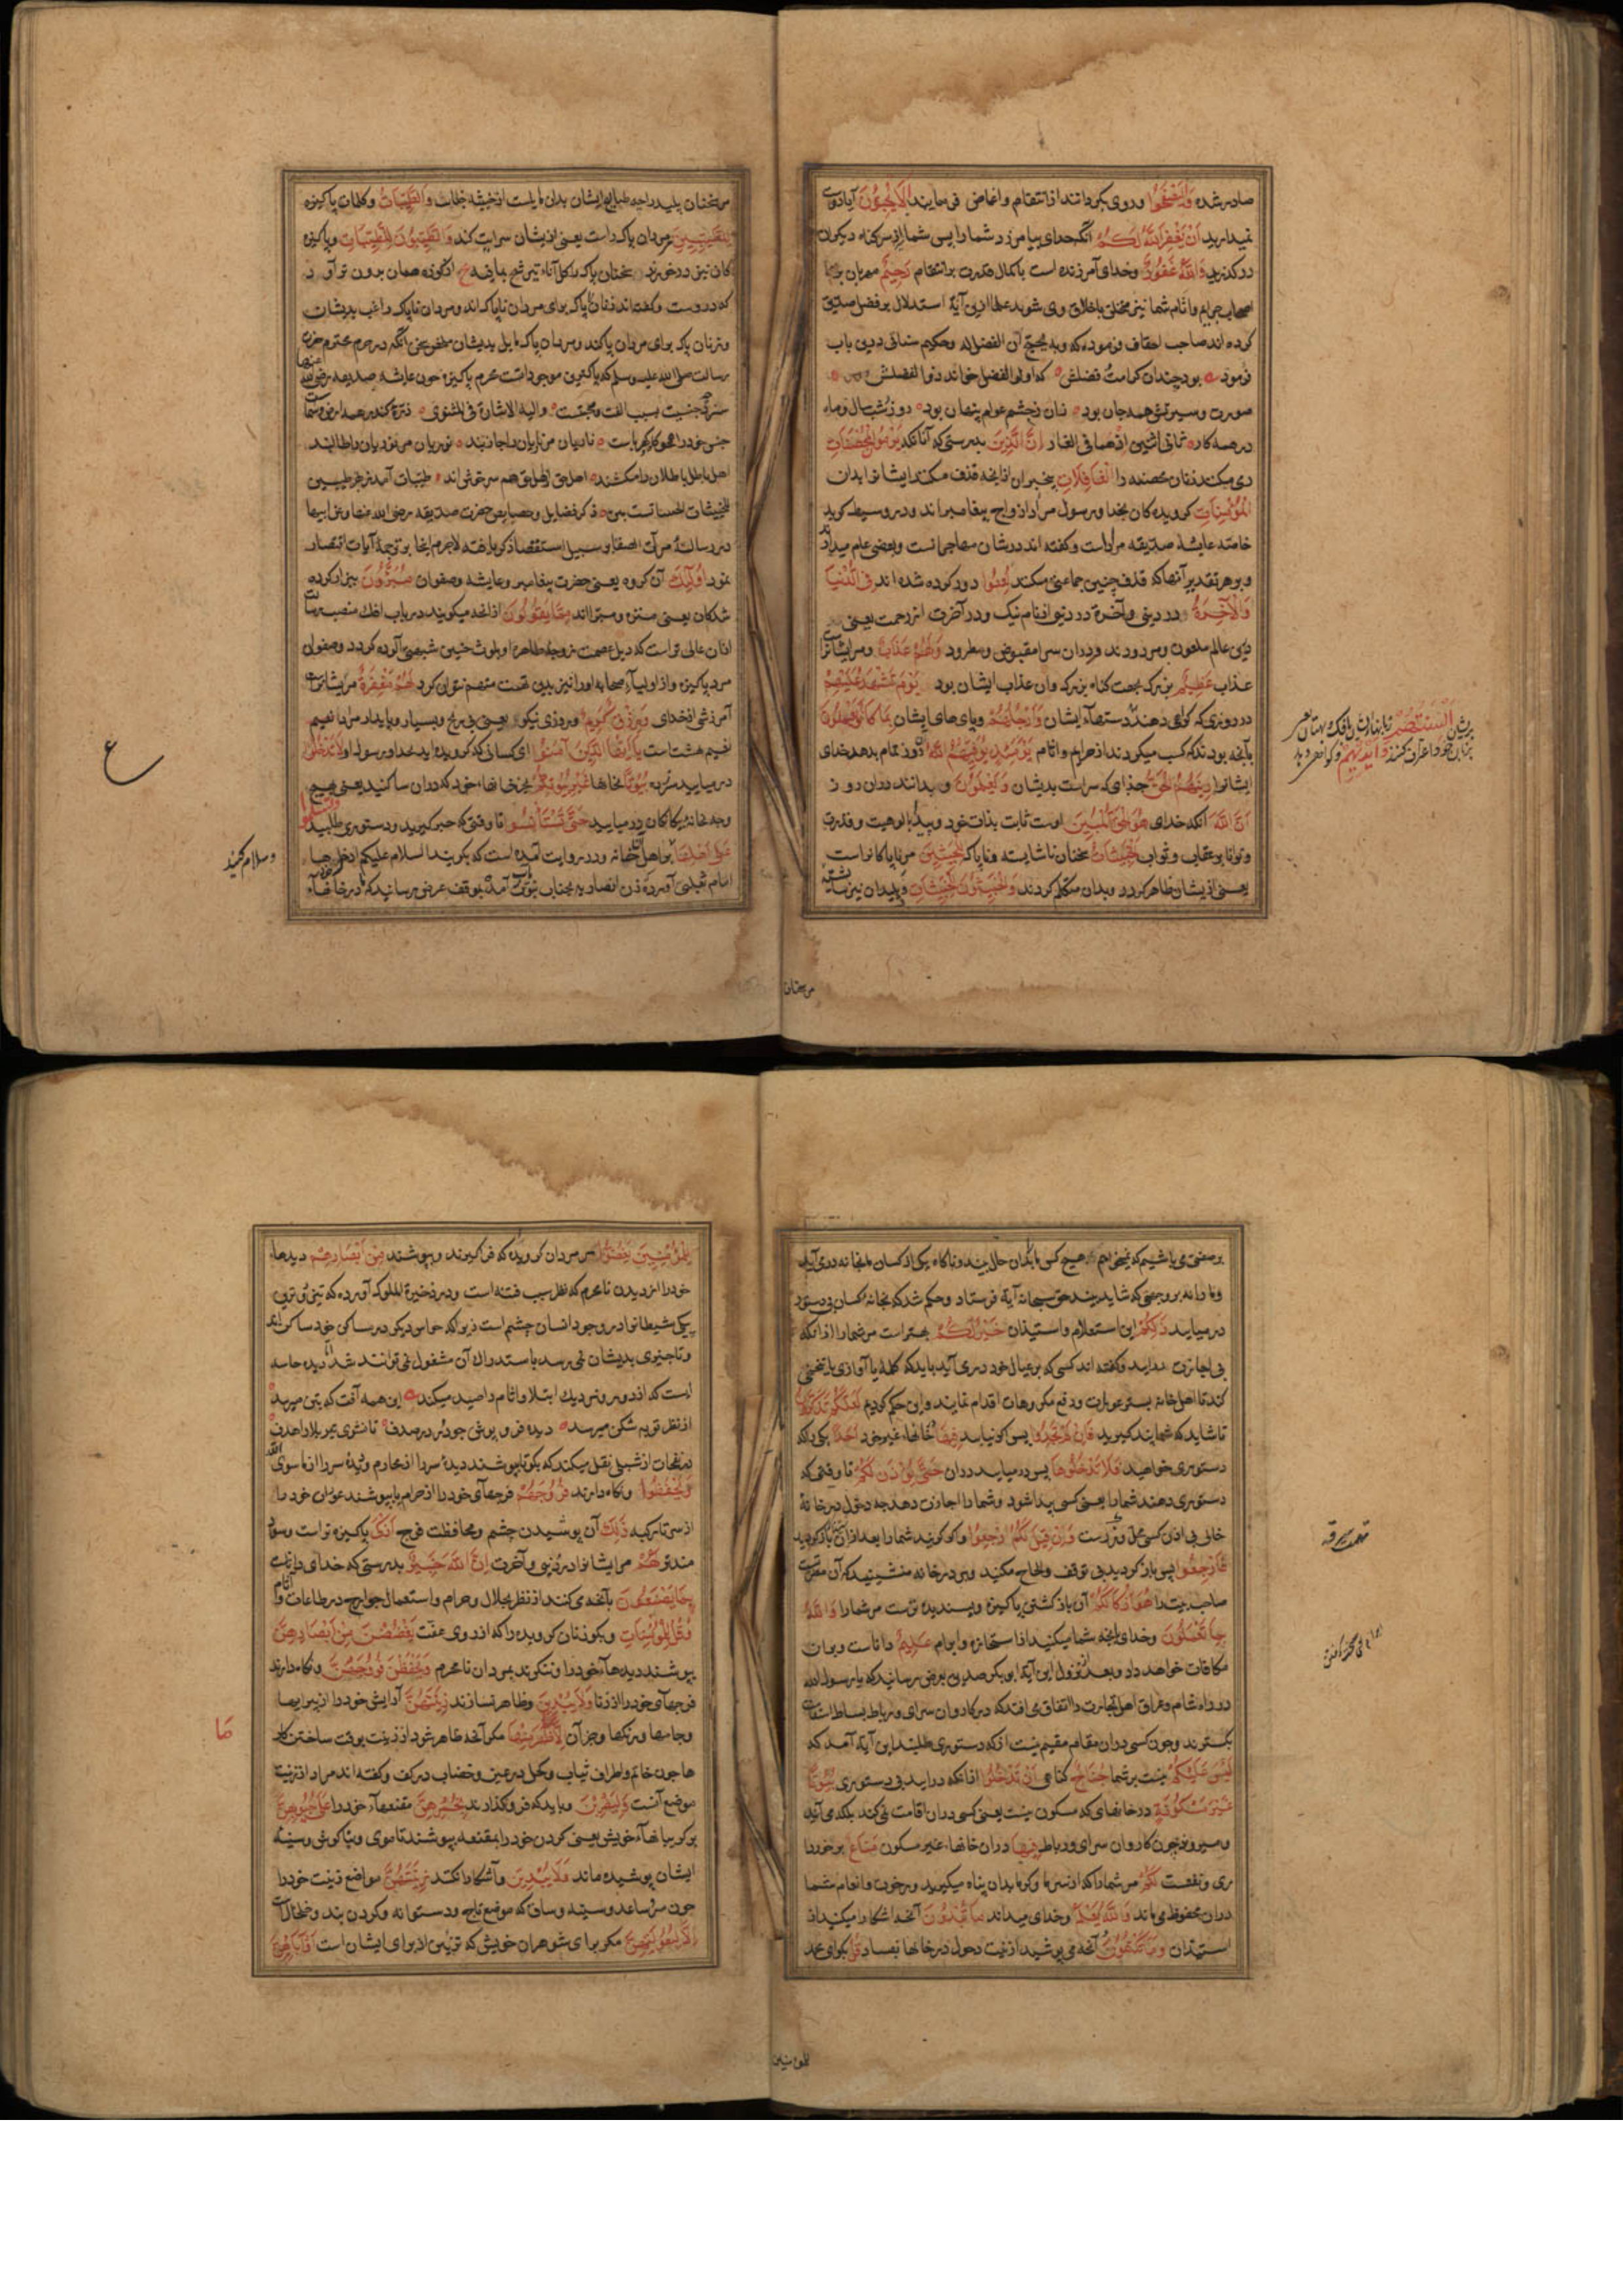 صادر شده وَلْيَصْفَحُوا و روی بگردانند از انتقام و اغماض فی نمایند أَلَا تُحِبُّونَ آیا دوست
نمیدارید أَنْ يَغْفِرَ اللَّهُ لَكُمْ آنگه خدای بیامرزد شما را پس شما از سر گناه دیگران
در گذرید وَاللَّهُ غَفُورٌ و خدای آمرزنده است با کمال قدرت بر انتقام رَحِيمٌ مهربان
اصحاب جرایم و آثام شما نیز متخلق باخلاق وی شوید علما ازین آیة استدلال بر فضل صدیق
کرده اند صاحب احقاف فرموده که وبه یحتج ان الفضل له و حکیم سنائی درین باب
فرمود بود چندان کرامت فضلش که اولو الفضل خواند ذوالفضلش
صورت و سیرتش همه جان بود زان ز چشم عوام پنهان بود روز و شب سال و ماه
در همه کار ثانی اثنین اذهما فی الغار إِنَّ الَّذِينَ بدرستی که آنانکه يَرْمُونَ الْمُحْصَنَاتِ
رمی میکنند زنان محصنه را الْغَافِلَاتِ بیخبران از آنچه قذف میکنند ایشانرا بدان
الْمُؤْمِنَاتِ گرویده کان بخدا و رسول مراد ازواج پیغامبراند و در وسیط گوید
خاصة عایشه صدیقه مراد است و گفته اند در شان مهاجرانست و بعضی عام میدارند
و بر هر تقدیر آنها که قذف چنین جماعتی میکنند لُعِنُوا دور کرده شده اند فِي الدُّنْيَا
وَالْآخِرَةِ در دنیی و آخرة در دنیا از نام نیک و در آخرت از رحمت یعنی
درین عالم ملعون و مردودند و در ان سرا مقبوض و مطرود وَلَهُمْ عَذَابٌ و مر ایشانرا
عذاب عَظِيمٌ بزرگ بجهت گناه بزرگ و ان عذاب ایشان بود يَوْمَ تَشْهَدُ عَلَيْهِمْ
در روزی که گواهی دهند دستهاء ایشان وَأَرْجُلُهُمْ و پای های ایشان بِمَا كَانُوا يَعْمَلُونَ
بآنچه بودند که کسب میکردند از جرایم و اثام يَوْمَئِذٍ يُوَفِّيهِمُ اللَّهُ آن روز تمام بدهد خدای
ایشانرا دِينَهُمُ الْحَقَّ جزای که سزاست بدیشان وَيَعْلَمُونَ و بدانند دران روز
أَنَّ اللَّهَ آنکه خدای هُوَ الْحَقُّ الْمُبِينُ اوست ثابت بذات خود و پیدا بالوهیت و قدرت
و توانا بر عقاب و ثواب الْخَبِيثَاتُ سخنان ناشایسته و ناپاک لِلْخَبِيثِينَ مر ناپاکانراست
یعنی از ایشان ظاهر گردد و بدان متکلم گردند وَالْخَبِيثُونَ لِلْخَبِيثَاتِ و پلیدان نیز
أَلْسِنَتُهُمْ زبانهاء ایشان
مر سخنان
مر سخنان پلید را چه طبایع ایشان بدان مایلست از خبیثه خطاب وَالطَّيِّبَاتُ و کلمات پاکیزه
لِلطَّيِّبِينَ مر مردان پاک راست یعنی از ایشان سرایت کند وَالطَّيِّبُونَ لِلطَّيِّبَاتِ و پاکیزه
کان نیز در خورند سخنان پاک را کل اناء یترشح بما فیه ع از کوزه همان برون تراود
که دروست و گفته اند زنان ناپاک برای مردان ناپاک اند و مردان ناپاک راغب بدیشان
و زنان پاک برای مردان پاکند و مردان پاک مایل بدیشان یعنی آنکه در حرم محترم حضرت
رسالت صلی الله علیه وسلم که پاکترین موجوداتست حرم پاکیزه چون عایشه صدیقه رضی الله عنها
سزد چه جنسیت سبب الفت و محبتست والیه الاشارة فی المثنوی ذره کندر همه ارض و سماست
جنس خود را همچو کاه و کهرباست ناریان مر ناریان را جاذبند نوریان مر نوریان را طالبند
اهل باطل باطلان را میکشند اهل حق از اهل حق هم سرخوشند طیبات آمد ز بهر طیبین
للخبیثات الخبیثاتست بین ذکر فضایل و خصایص حضرت صدیقه رضی الله عنها و عن ابیها
در رسالۀ مرآت الصفا بر سبیل استقصا ذکر یافته لاجرم اینجا بر ترجمۀ آیات اقتصار
نمود أُولَئِكَ آن گروه یعنی حضرت پیغامبر و عایشه و صفوان مُبَرَّءُونَ بیزار کرده
شدکان یعنی منزه و مبرااند مِمَّا يَقُولُونَ از آنچه میگویند در باب افک منصب رسالت
ازان عالی تراست که ذیل عصمت زوجۀ طاهرۀ او بلوث چنین شبهتی آلوده گردد و صفوان
مرد پاکیزه و از اولیاء صحابه اورا نیز بدین تهمت متهم نتوان کرد لَهُمْ مَغْفِرَةٌ مر ایشانراست
آمرزش از خدای وَرِزْقٌ كَرِيمٌ و روزی نیکو یعنی بی رنج و بسیار و پایدار مراد نعیم
نعیم بهشت است يَا أَيُّهَا الَّذِينَ آمَنُوا ای کسانی که گرویده اید بخدا و رسول او لَا تَدْخُلُوا
در میایید مردم بُيُوتًا بخانها غَيْرَ بُيُوتِكُمْ بجز خانهاء خود که دران ساکنید یعنی هیچ
وجه بخانۀ بیکانکان در میایید حَتَّى تَسْتَأْنِسُوا تا وقتی که خبر گیرید و دستوری طلبید وَتُسَلِّمُوا
عَلَى أَهْلِهَا بر اهل آن خانه و در روایت آمده است که بگویند السلام علیکم ادخل
امام ثعلبی آورده زن انصاریه بجناب نبوت آمده بموقف عرض رسانید که در خانهاء
وسلام کنید
ع
بر صفتی می باشیم که نمیخواهم هیچ کس ما بدان حال بیند و ناکاه یکی از کسان ما بخانه درمی آید
و ما را نه بر وجهی که شاید بیند حق سبحانه آیة فرستاد و حکم شد که بخانۀ کسان بی دستور
در میایید ذَلِكُمْ این استعلام و استیذان خَيْرٌ لَكُمْ بهتر است مر شما را از آنکه
بی اجازت درآیید و گفته اند کسی که بر عیال خود درمی آید باید که کلمۀ یا آوازی یا تنحنحی
کند تا اهل خانه بستر عورات و دفع مکروهات اقدام نمایند و این حکم کردیم لَعَلَّكُمْ تَذَكَّرُونَ
تا شاید که شما پند گیرید فَإِنْ لَمْ تَجِدُوا پس اگر نیابید فِيهَا در خانهاء غیر خود أَحَدًا یکی را که
دستوری خواهید فَلَا تَدْخُلُوهَا پس در میایید دران حَتَّى يُؤْذَنَ لَكُمْ تا وقتی که
دستوری دهند شما را یعنی کسی پیدا شود و شما را اجازت دهد چه دخول در خانۀ
خالی بی اذن کسی محل تهمت است وَإِنْ قِيلَ لَكُمُ ارْجِعُوا و اگر گویند شما را بعد از اذن باز گردید
فَارْجِعُوا پس باز گردید بی توقف و الحاح مکنید و بر در خانه منشینید که آن مضر است
صاحب بیت را هُوَ أَزْكَى لَكُمْ آن باز کشتن پاکیزه و پسندیده تراست مر شما را وَاللَّهُ
بِمَا تَعْمَلُونَ و خدای بآنچه شما میکنید از استجازه و ابرام عَلِيمٌ داناست و بران
مکافات خواهد داد و بعد از نزول این آیة ابو بکر صدیق بعرض رسانید که یا رسول الله
در راه شام و عراق اهل تجارت را اتفاق می افتد که در کاروان سرای و رباط بساط استقامت
بگسترند و چون کسی دران مقام مقیم نیست از که دستوری طلبند این آیة آمد که
لَيْسَ عَلَيْكُمْ نیست بر شما جُنَاحٌ گناهی أَنْ تَدْخُلُوا از آنکه درآیید بی دستوری بُيُوتًا
غَيْرَ مَسْكُونَةٍ در خانهای که مسکون نیست یعنی کسی دران اقامت نمی کند بلکه می آیند
و میروند چون کاروان سرای و رباط فِيهَا دران خانهاء غیر مسکون مَتَاعٌ برخوردا
ری و منفعت لَكُمْ مر شما را که از سرما و گرما بدان پناه میگیرید و رخوت و انعام شما
دران محفوظ می ماند وَاللَّهُ يَعْلَمُ و خدای میداند مَا تُبْدُونَ آنچه آشکارا میکنید از
استیذان وَمَا تَكْتُمُونَ آنچه می پوشید از نیت دخول در خانها بفساد قُلْ بگو ای محمد
للمؤمنین
لِلْمُؤْمِنِينَ يَغُضُّوا مر مردان گرویده که فراگیرند و بپوشند مِنْ أَبْصَارِهِمْ دیدهاء
خود را از دیدن نامحرم که نظر سبب فتنه است و در ذخیرة الملوک آورده که تیزترین
پیکی شیطانرا در وجود انسان چشم است زیرا که حواس دیگر در مساکن خود ساکن اند
و تا چیزی بدیشان نمی رسد باستدراک آن مشغول نمی توانند شد اما دیده حاسه
ایست که از دور و نزدیک ابتلا و اثام را صید میکند این همه آفت که بتن میرسد
از نظر توبه شکن میرسد دیده فرو پوش چو در در صدف تا نشوی تیر بلا را هدف
در نفحات از شبلی نقل میکند که بگو تا بپوشند دیدۀ سر را از محارم و دیدۀ سر را از ما سوی الله
وَيَحْفَظُوا و نگاه دارند فُرُوجَهُمْ فرجهاء خود را از حرام یا بپوشند عورات خود را
از سر تا رکبه ذَلِكَ آن پوشیدن چشم و محافظت فرج أَزْكَى پاکیزه تراست و سود
مند تر لَهُمْ مر ایشانرا در دنیی و آخرت إِنَّ اللَّهَ خَبِيرٌ بدرستی که خدای داناست
بِمَا يَصْنَعُونَ بآنچه می کنند از نظر بحلال و حرام و استعمال جوارح در طاعات و آثام
وَقُلْ لِلْمُؤْمِنَاتِ و بگو زنان گرویده را که از روی عفت يَغْضُضْنَ مِنْ أَبْصَارِهِنَّ
بپوشند دیدهاء خود را و ننگرند بمردان نامحرم وَيَحْفَظْنَ فُرُوجَهُنَّ و نگاه دارند
فرجهاء خود را از زنا وَلَا يُبْدِينَ و ظاهر نسازند زِينَتَهُنَّ آرایش خود را از پیرایها
و جامها و رنگها و جز آن إِلَّا مَا ظَهَرَ مِنْهَا مگر آنچه ظاهر شود از زینت بوقت ساختن کار
ها چون خاتم و اطراف ثیاب و کحل در عین و خضاب در کف و گفته اند مراد از زینت
موضع آنست وَلْيَضْرِبْنَ و باید که فرو گذارند بِخُمُرِهِنَّ مقنعهاء خود را عَلَى جُيُوبِهِنَّ
بر گریبانهاء خویش یعنی گردن خود را بمقنعه بپوشند تا موی و بناگوش و سینه
ایشان پوشیده ماند وَلَا يُبْدِينَ و آشکارا نکنند زِينَتَهُنَّ مواضع زینت خود را
چون سر و ساعد و سینه و ساق که موضع تاج و دستوانه و گردن بند و خلخالست
إِلَّا لِبُعُولَتِهِنَّ مگر برای شوهران خویش که تزئین از برای ایشان است أَوْ آبَائِهِنَّ
مَا